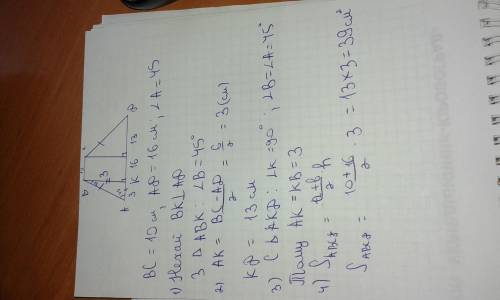 B
C
3
A
3
K
16
13
D
BC = 10 см, AD = 16 см; ∠A = 45
1) Нехай BK⊥AD
З △ABK: ∠B = 45°
2) AK = BC-AD/2 = 6/2 = 3 (см)
KD = 13 см
3) С △AKB: ∠K = 90°; ∠B = ∠A = 45°
Тому AK = KB = 3
4) S_ABCD = a+b/2 h
S_ABCD = 10+16/2 · 3 = 13×3 = 39 см²